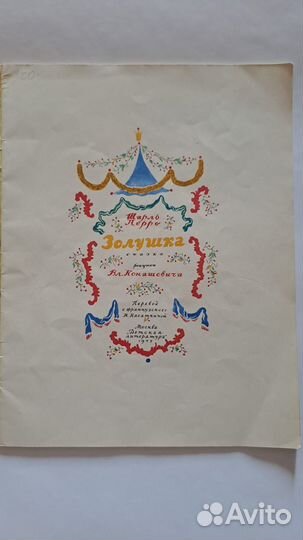 Шарль
Перро
Золушка
сказка
рисунки
Вл. Конашевича
Перевод
с французского
Москва
"Детская
литература"
Avito